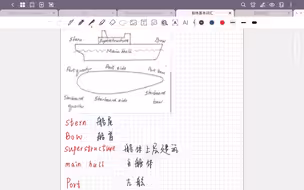 Stern
Superstructure
Bow
Main hull
Port quarter
Port side
Port bow
Starboard quarter
Starboard side
Starboard bow
stern 船尾
Bow 船首
superstructure 船体上层建筑
main hull 主船体
Port 左舷